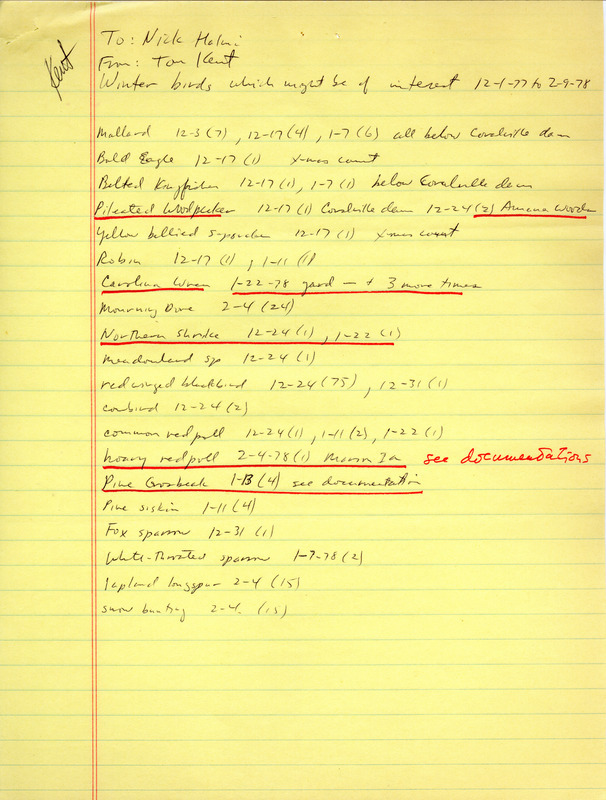 Kent
To: Nick Halmi
From: Tom Kent
Winter birds which might be of interest 12-1-77 to 2-9-78
Mallard 12-3 (7), 12-17 (4), 1-7 (6) all below Coralville dam
Bald Eagle 12-17 (1) X-mas count
Belted Kingfisher 12-17 (1), 1-7 (1) below Coralville dam
Pileated Woodpecker 12-17 (1) Coralville dam 12-24 (2) Amana Woods
Yellow bellied sapsucker 12-17 (1) X-mas count
Robin 12-17 (1), 1-11 (1)
Carolina Wren 1-22-78 yard — + 3 more times
Mourning Dove 2-4 (24)
Northern Shrike 12-24 (1), 1-22 (1)
meadowlark sp 12-24 (1)
red winged blackbird 12-24 (75), 12-31 (1)
cowbird 12-24 (2)
common redpoll 12-24 (1), 1-11 (2), 1-22 (1)
hoary redpoll 2-4-78 (1) Ia see documentations
Pine Grosbeak 1-13 (4) see documentation
Pine siskin 1-11 (4)
Fox sparrow 12-31 (1)
White-throated sparrow 1-7-78 (2)
lapland longspur 2-4 (15)
snow bunting 2-4 (15)